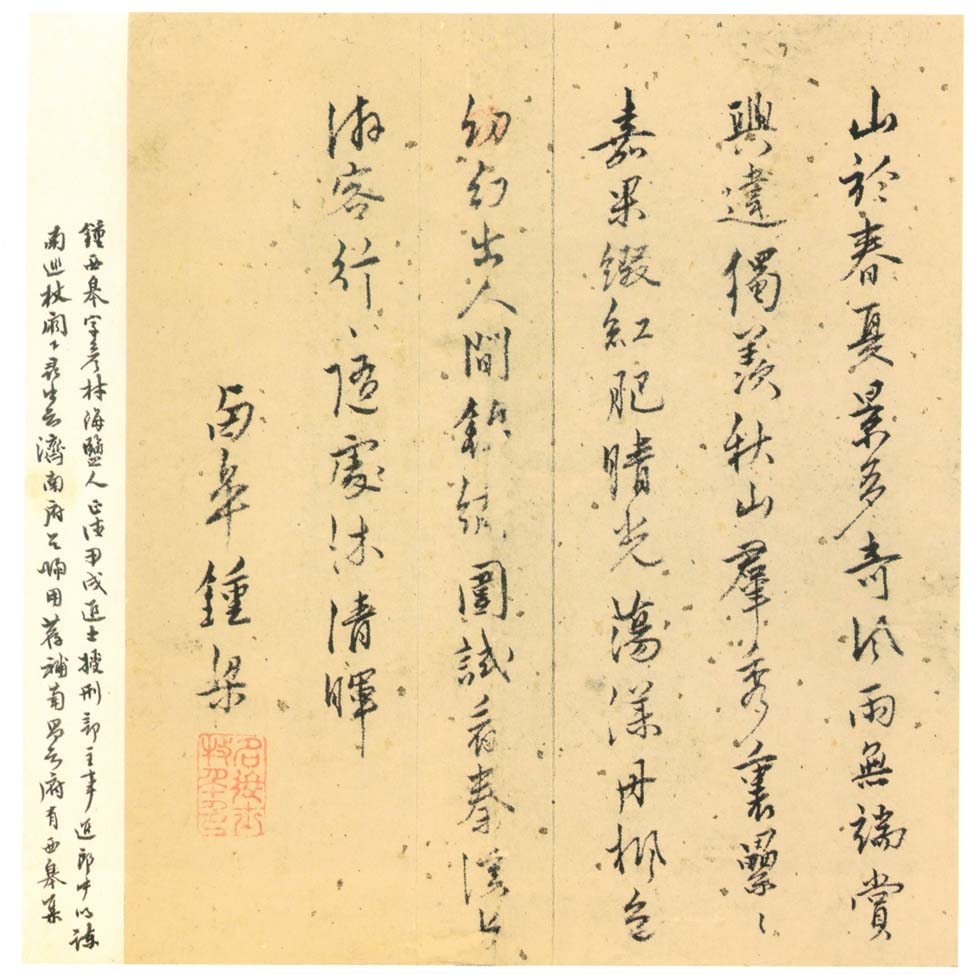 山於春夏景多奇風雨無端賞
興違獨羨秋山羣秀裏纍〻
嘉果綴紅肥晴光蕩漾丹楓色
幼幻出人間錦綉圍試看秦溪上
游客行〻隨處沐清暉
西皋鍾梁
鍾西皋字彥材海鹽人正德甲戌進士授刑部主事進郎中以諫
南巡杖闕下尋出知濟南府用薦補南昌知府有西皋集